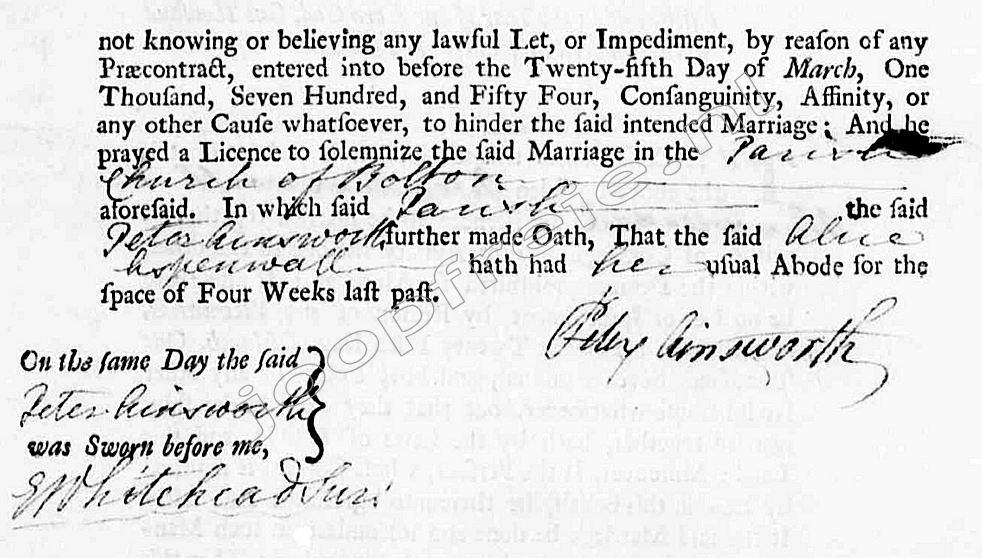 not knowing or believing any lawful Let, or Impediment, by reaſon of any
Præcontract, entered into before the Twenty-fifth Day of March, One
Thouſand, Seven Hundred, and Fifty Four, Conſanguinity, Affinity, or
any other Cauſe whatſoever, to hinder the ſaid intended Marriage: And he
prayed a Licence to ſolemnize the ſaid Marriage in the Parish
Church of Bolton
aforeſaid. In which ſaid Parish the ſaid
Peter Ainsworth further made Oath, That the ſaid Alice
Aspenwall hath had her uſual Abode for the
ſpace of Four Weeks laſt paſt.
Peter Ainsworth
On the ſame Day the ſaid
Peter Ainsworth
was Sworn before me,
Whitehead Surr
joopfreie.nl